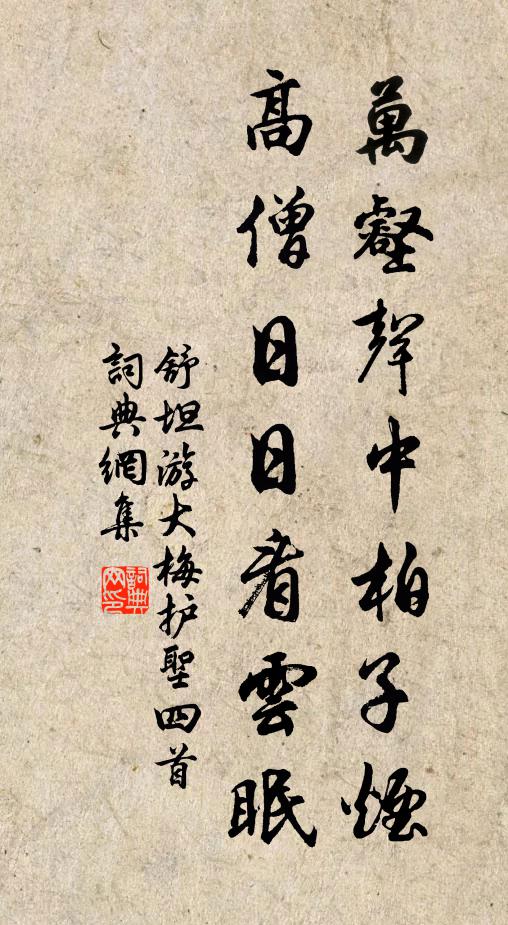 萬壑聲中柏子煙
高僧日日看雲眠
舒坦游大梅护聖四首
詞典網集
詞典網印